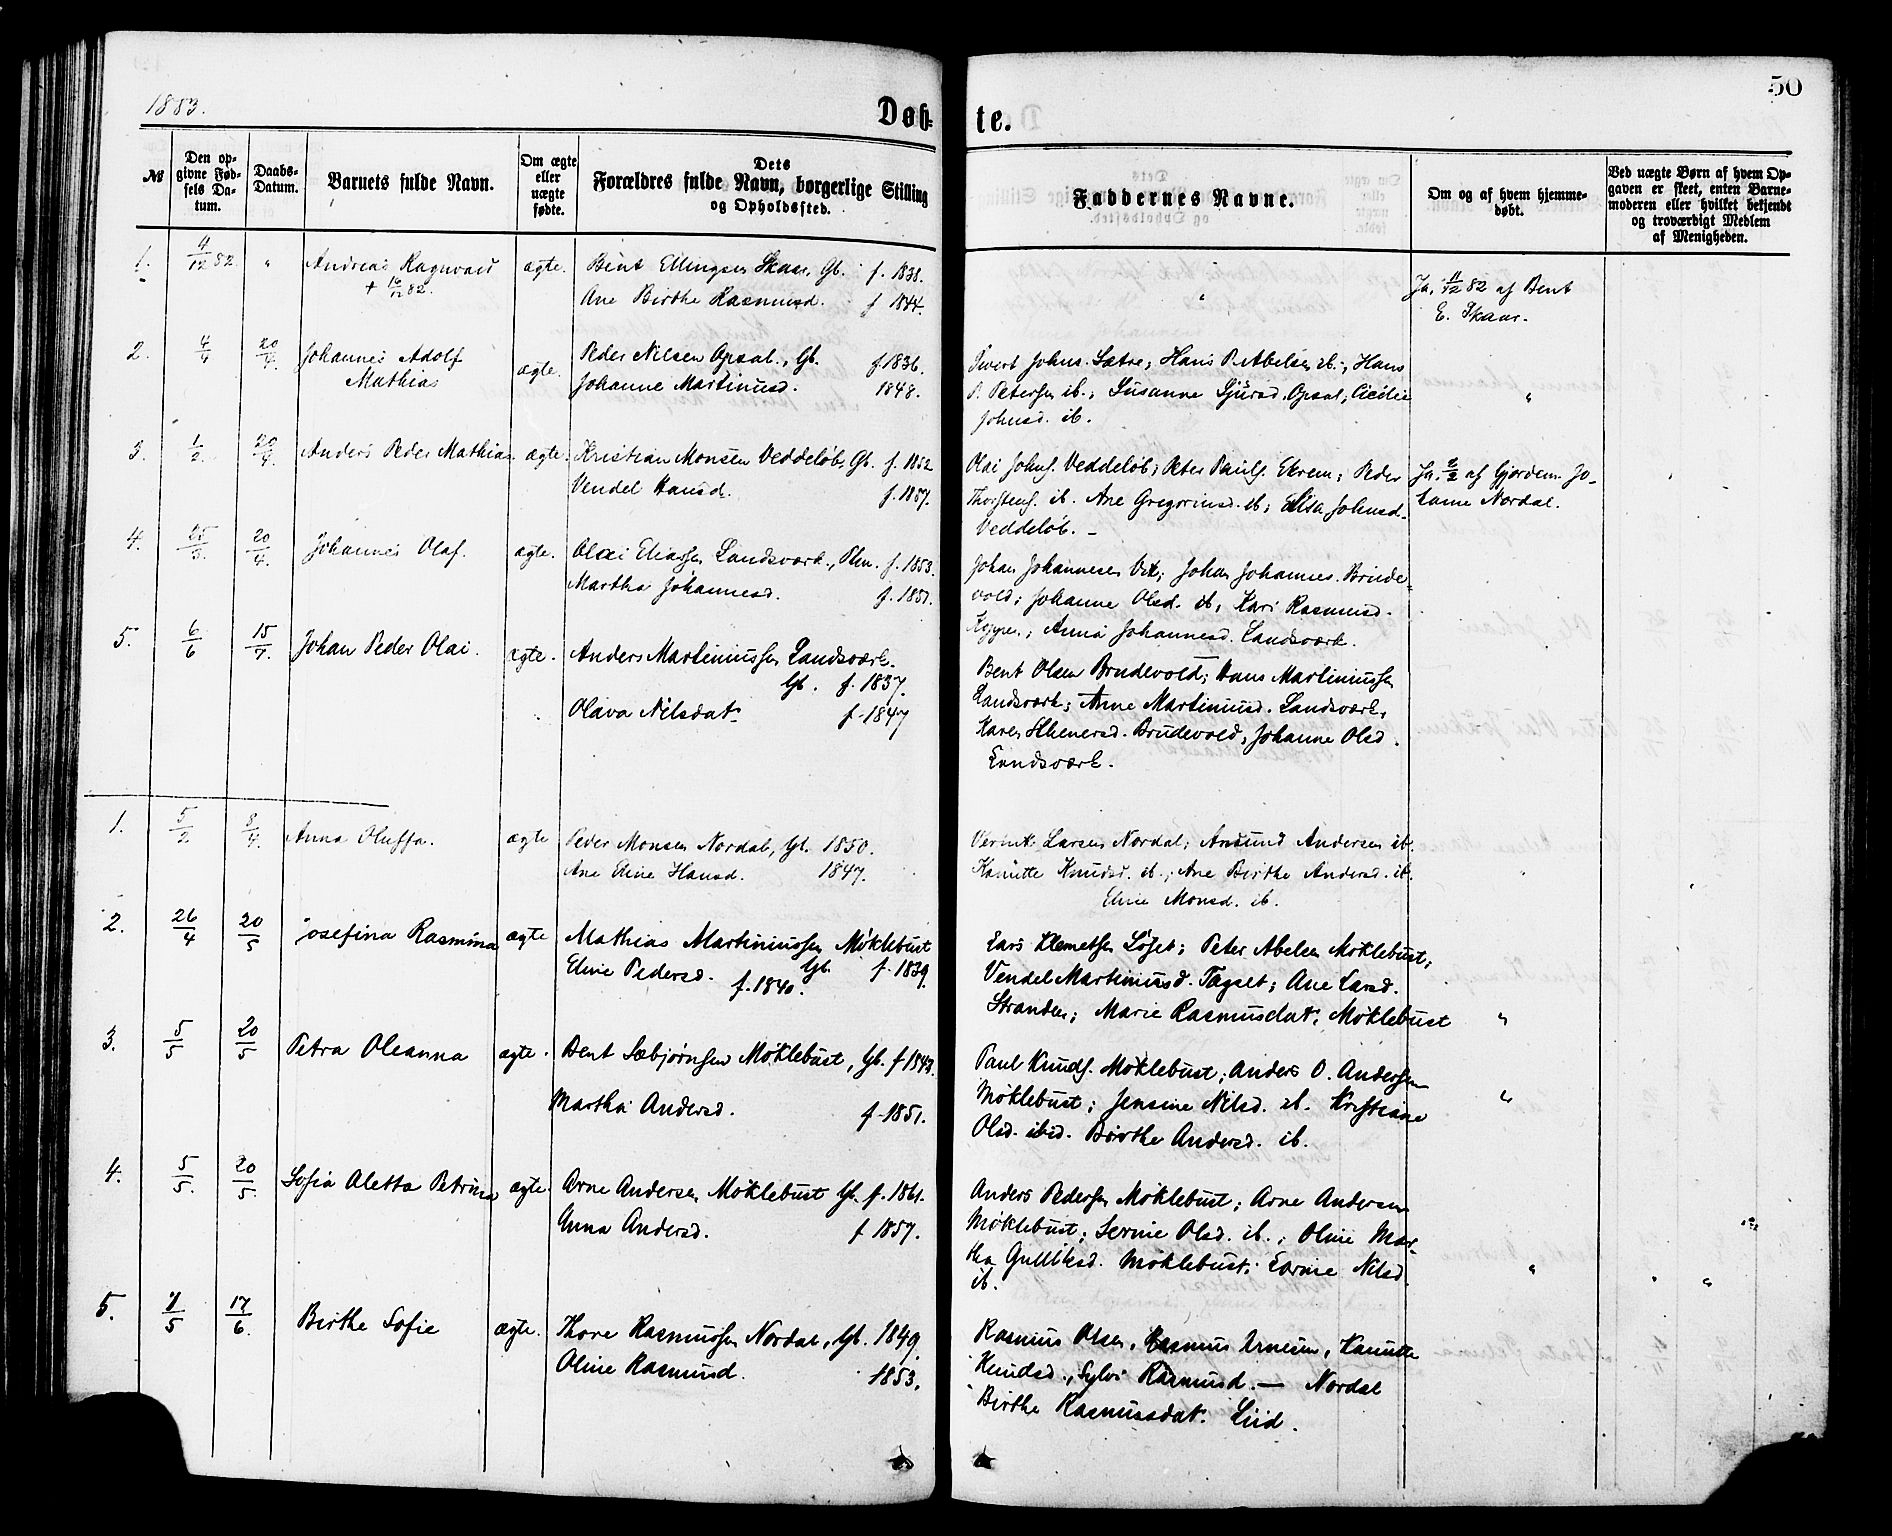 1883.
Døb-
te.
50
№
Den op-
givne Fød-
sels Da-
tum.
Daabs-
Datum.
Barnets fulde Navn.
Om ægte
eller
uægte
fødte.
Dets
Forældres fulde Navn, borgerlige Stilling
og Opholdssted.
Faddernes Navne.
Om og af hvem hjemme-
døbt.
Ved uægte Børn af hvem Op-
gaven er skeet, enten Barne-
moderen eller hvilket bekjendt
og troværdigt Medlem
af Menigheden.
1. 4/12 82 " Andreas Ragnvald ægte. Bent Ellingsen Skaar, Gb. f. 1838.
+ 16/12 82. Ane Birthe Rasmusd. f 1844.
" Ja, 11/12 82 af Bent
E. Skaar.
2. 4/4 20/4. Johannes Adolf ægte. Peder Nilsen Opsal, Gb. f. 1836.
Mathias Johanne Martinusd. 1848.
Sivert Johns. Sætre; Hans P. Abelsen ib.; Hans
P. Petersen ib.; Susanne Sjursd. Opsal; Cicilie
Johnsd. ib. "
3. 1/2. 20/4. Anders Peder Mathias. ægte. Kristian Monsen Veddeløb, Gb. f. 1852
Vendel Hansd. f. 1857.
Olai Johns. Veddeløb; Peter Pauls. Ekrem; Peder
Thorstens. ib. Ane Gregoriusd. ib; Elisa Johnsd.
Veddeløb. –
Ja. 2/2 af Gjordem. Jo-
hanne Nordal.
4. 25/3. 20/4. Johannes Olaf. ægte. Olai Eliassen Landsværk, Plm. f. 1853.
Martha Johannesd. f. 1851.
Johan Johannesen Vik; Johan Johannes. Brude-
vold; Johanne Olsd. ib, Kari Rasmusd.
; Anna Johannesd. Landsværk.
5. 6/6 15/7. Johan Peder Olai. ægte. Anders Martiniussen Landsværk.
Gb. f. 1837.
Olava Nilsdat. f. 1847
Bent Olsen Brudevold; Hans Martiniussen
Landsværk; Anne Martiniusd. Landsværk,
Karen Brudevold, Johanne Olsd.
Landsværk.
1. 5/2 8/4. Anna Oluffa. ægte Peder Monsen Nordal, Gb. 1850.
Ane Eline Hansd. 1847.
Larsen Nordal; Amund Andersen ib.
Kanutte Knudsd. ib.; Ane Birthe Andersd. ib.
Eline Monsd. ib.
2. 26/4 20/5 Josefina Rasmina ægte Mathias Martiniussen Møklebust
Eline Pedersd. Gb. f. 1839.
f. 1840.
Lars Klemetsen Løset; Peter Abelsen Møklebust;
Vendel Martiniusd. Tagset; Ane Larsd.
Stranden; Marie Rasmusdat. Møklebust "
3. 5/5 20/5 Petra Oleanna ægte. Bent Sæbjørnsen Møklebust, Gb. f 1843.
Martha Andersd. f. 1851.
Paul Knuds. Møklebust; Anders O. Andersen
Møklebust; Jensine Nilsd. ib. Kristiane
Olsd. ibid. Birthe Andersd. ib. "
4. 5/5. 20/5. Sofia Aletta Petrina ægte. Arne Andersen Møklebust Gb. f. 1861.
Anna Andersd. f 1857.
Anders Pedersen Møklebust; Arne Andersen
Møklebust; Serine Olsd. ib.; Oline Mar-
tha Gulliksd. Møklebust; Nilsd.
ib. "
5. 7/5 17/6. Birthe Sofie ægte. Thore Rasmussen Nordal, Gb. 1849.
Oline Rasmusd. 1853.
Rasmus Olsen, Rasmus Arnesen, Kanutte
Knudsd., Sylvi Rasmusd. — Nordal
Birthe Rasmussdat. Liid.